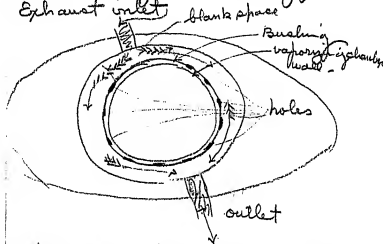 Exhaust inlet
blank space
Bushing
vaporizing chamber
wall
holes
outlet